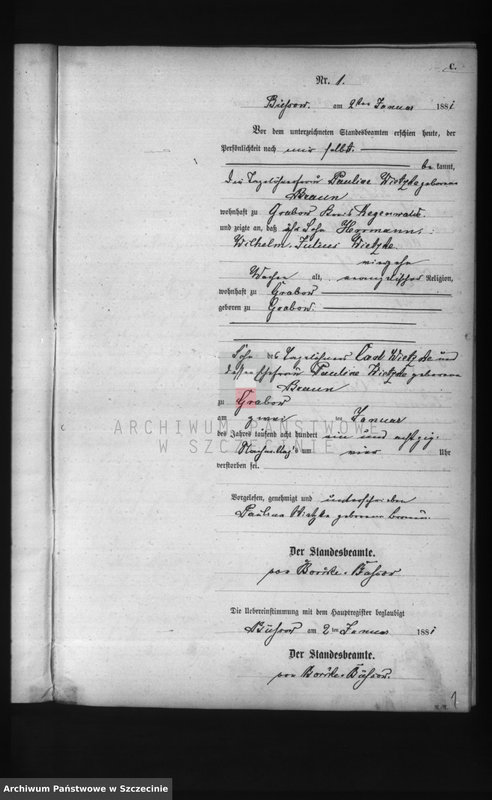 C.
Nr. 1.
am 2ten Januar 1881
Vor dem unterzeichneten Standesbeamten erschien heute, der
Persönlichkeit nach mir selbst
bekannt,
die Tagelöhnerfrau Pauline Wietzke geborene
Braun
wohnhaft zu Grabow Kreis Regenwalde
und zeigte an, daß ihr Sohn Herrmann
Wilhelm Julius Wietzke
Wochen alt, evangelischer Religion,
wohnhaft zu Grabow
geboren zu Grabow
Sohn des Tagelöhners Carl Wietzke und
dessen Ehefrau Pauline Wietzke geborene
Braun
zu Grabow
am zwei ten Januar
des Jahres tausend acht hundert ein und achtzig
Nachmittags um vier Uhr
verstorben sei.
ARCHIWUM PAŃSTWOWE
W SZCZECINIE
Vorgelesen, genehmigt und unterschrieben
Pauline Wietzke geborene Braun
Der Standesbeamte.
von Borcke
Die Uebereinstimmung mit dem Hauptregister beglaubigt
am 2ten Januar 1881
Der Standesbeamte.
von Borcke
1
Archiwum Państwowe w Szczecinie